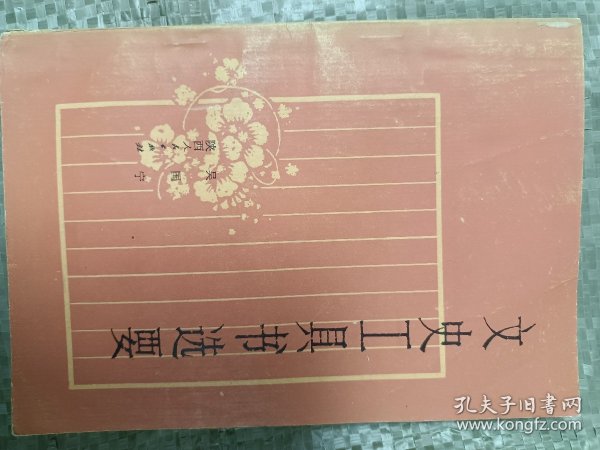 文史工具书选要
吴国宁
陕西人民出版社
孔夫子旧书网
www.kongfz.com